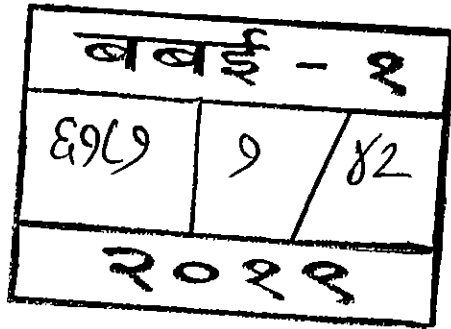 बबई - १
६१८१ १ / ४२
२०११